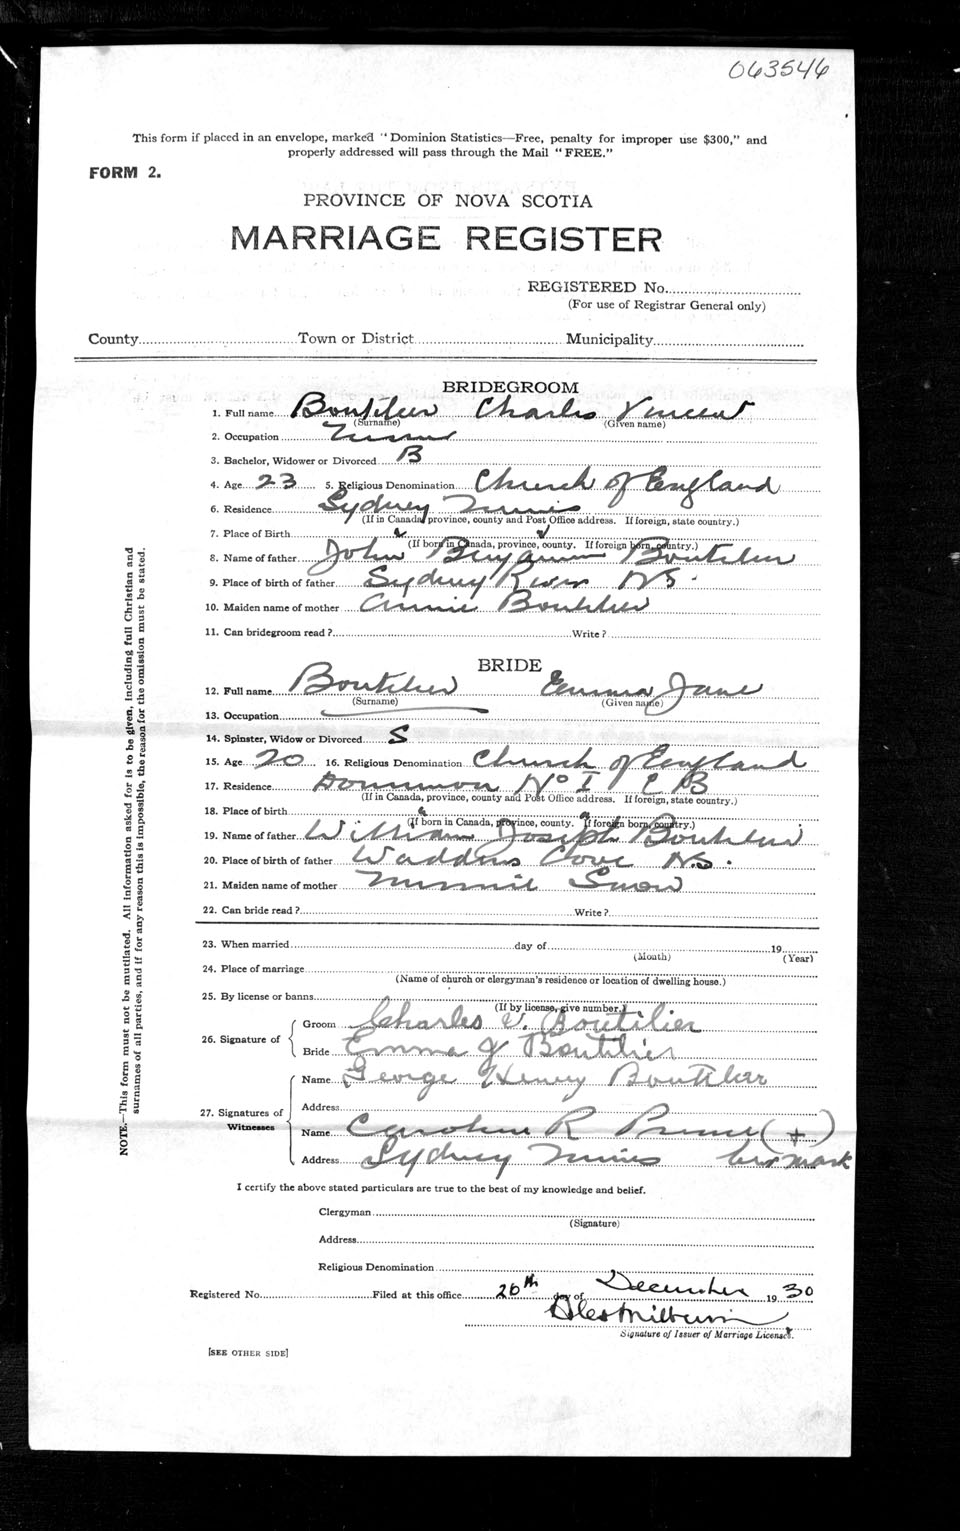 063546
This form if placed in an envelope, marked "Dominion Statistics—Free, penalty for improper use $300," and
properly addressed will pass through the Mail "FREE."
FORM 2.
PROVINCE OF NOVA SCOTIA
MARRIAGE REGISTER
REGISTERED No.
(For use of Registrar General only)
County Town or District Municipality
BRIDEGROOM
1. Full name Boutilier Charles Vincent
(Surname) (Given name)
2. Occupation
3. Bachelor, Widower or Divorced B
4. Age 23 5. Religious Denomination Church of England
6. Residence Sydney Mines
(If in Canada, province, county and Post Office address. If foreign, state country.)
7. Place of Birth
(If born in Canada, province, county. If foreign born, country.)
8. Name of father John Benjamin Boutilier
9. Place of birth of father Sydney River NS.
10. Maiden name of mother Annie Boutilier
11. Can bridegroom read? Write?
BRIDE
12. Full name Boutilier Emma Jane
(Surname) (Given name)
13. Occupation
14. Spinster, Widow or Divorced S
15. Age 20 16. Religious Denomination Church of England
17. Residence Dominion No 1 C B
(If in Canada, province, county and Post Office address. If foreign, state country.)
18. Place of birth
(If born in Canada, province, county. If foreign born, country.)
19. Name of father William Joseph Boutilier
20. Place of birth of father Waddens Cove NS.
21. Maiden name of mother Minnie Snow
22. Can bride read? Write?
23. When married day of 19
(Month) (Year)
24. Place of marriage
(Name of church or clergyman's residence or location of dwelling house.)
25. By license or banns
(If by license, give number.)
26. Signature of
Groom Charles V. Boutilier
Bride Emma J Boutilier
27. Signatures of Witnesses
Name George Henry Boutilier
Address
Name Caroline R (+)
Address Sydney Mines her mark
I certify the above stated particulars are true to the best of my knowledge and belief.
Clergyman
(Signature)
Address
Religious Denomination
Registered No. Filed at this office 26th day of December 1930
Signature of Issuer of Marriage Licenses.
[SEE OTHER SIDE]
NOTE.—This form must not be mutilated. All information asked for is to be given, including full Christian and
surnames of all parties, and if for any reason this is impossible, the reason for the omission must be stated.